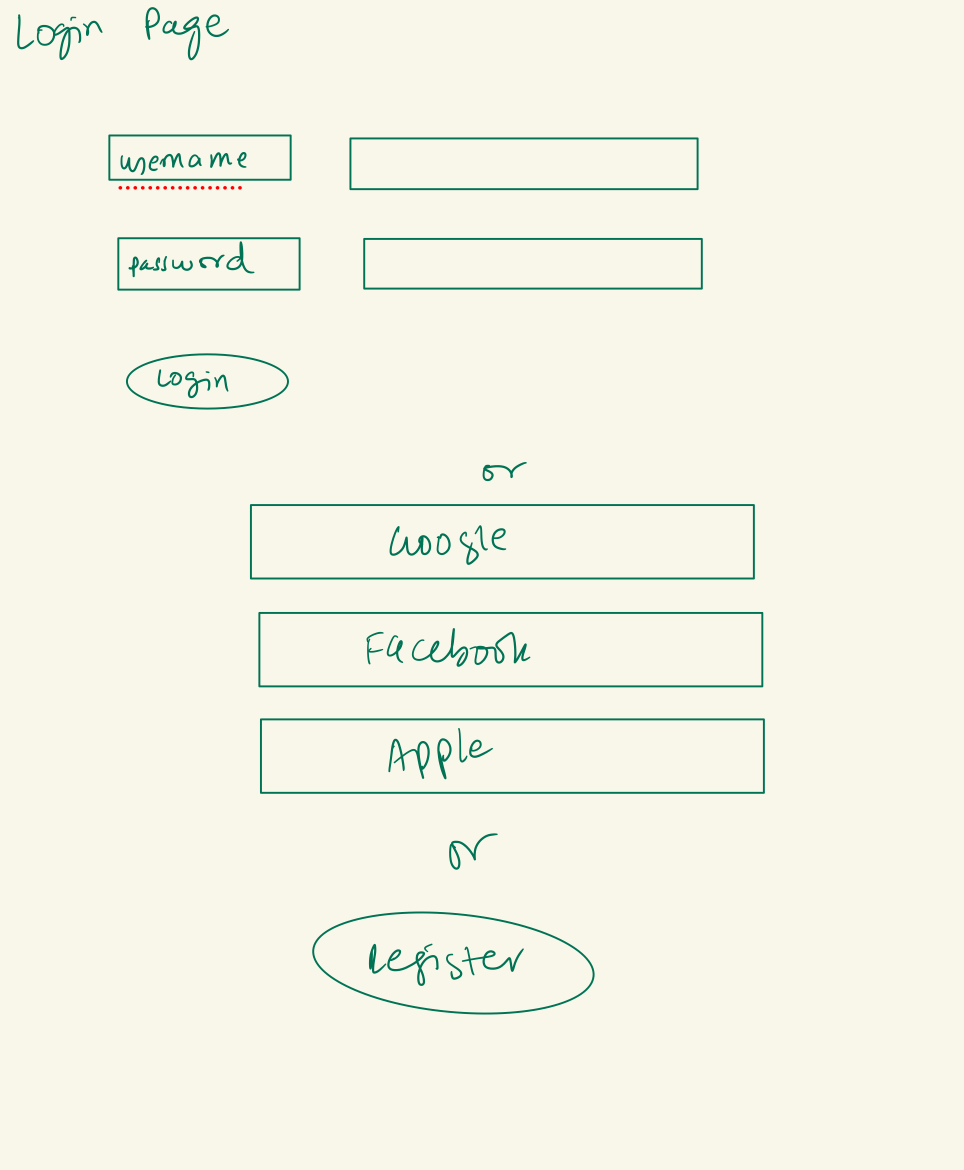 Login Page
username
password
Login
or
Google
Facebook
Apple
or
Register